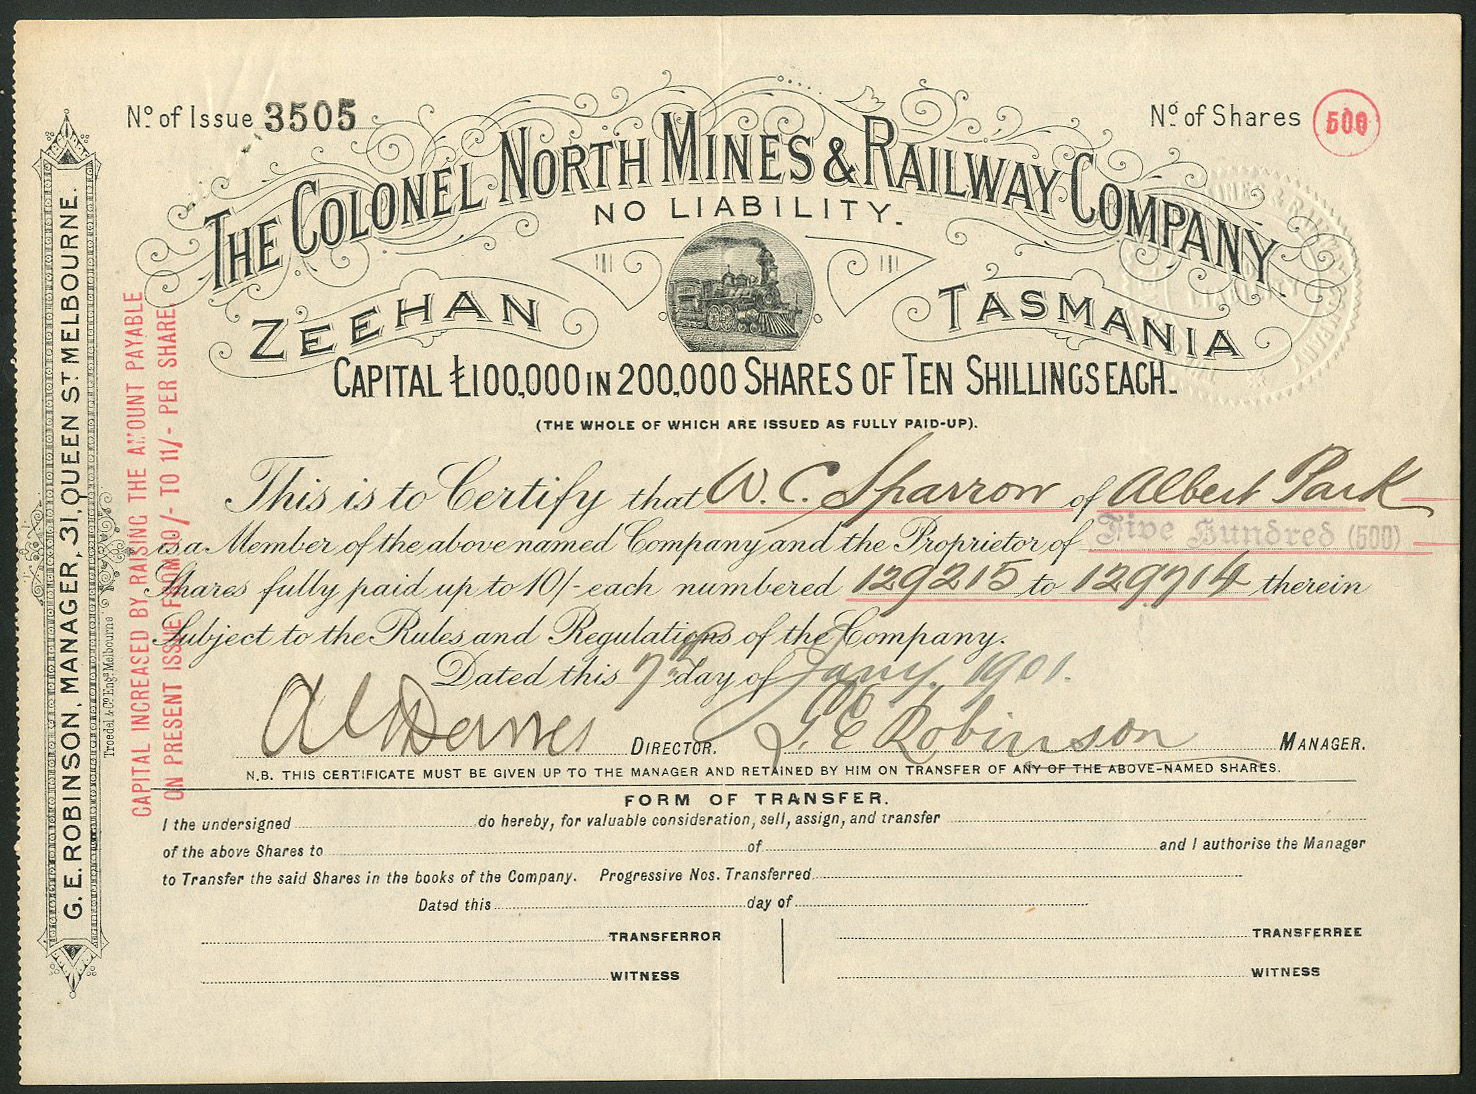 No. of Issue 3505
No. of Shares 500
THE COLONEL NORTH MINES & RAILWAY COMPANY
NO LIABILITY.
ZEEHAN TASMANIA
CAPITAL £100,000 IN 200,000 SHARES OF TEN SHILLINGS EACH.
(THE WHOLE OF WHICH ARE ISSUED AS FULLY PAID-UP).
This is to Certify that W. C. Sparrow of Albert Park
is a Member of the above named Company and the Proprietor of Five Hundred (500)
Shares fully paid up to 10/- each numbered 129215 to 129714 therein
Subject to the Rules and Regulations of the Company.
Dated this 7th day of Jany. 1901.
DIRECTOR. G. E. Robinson MANAGER.
N.B. THIS CERTIFICATE MUST BE GIVEN UP TO THE MANAGER AND RETAINED BY HIM ON TRANSFER OF ANY OF THE ABOVE-NAMED SHARES.
FORM OF TRANSFER.
I the undersigned do hereby, for valuable consideration, sell, assign, and transfer
of the above Shares to of and I authorise the Manager
to Transfer the said Shares in the books of the Company. Progressive Nos. Transferred
Dated this day of
TRANSFERROR TRANSFERREE
WITNESS WITNESS
G. E. ROBINSON, MANAGER, 31, QUEEN ST MELBOURNE.
Troedel & Co. Engs. Melbourne
CAPITAL INCREASED BY RAISING THE AMOUNT PAYABLE
ON PRESENT ISSUE FROM 10/- TO 11/- PER SHARE.